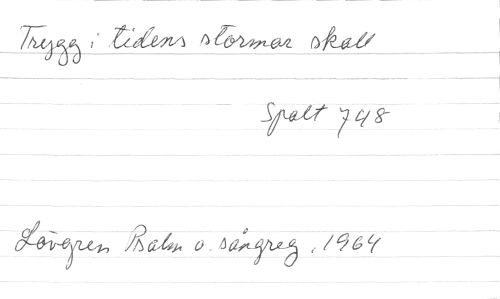 Trygg i tidens stormar skall
Spalt 748
Lövgren Psalm o. sångreg. 1964